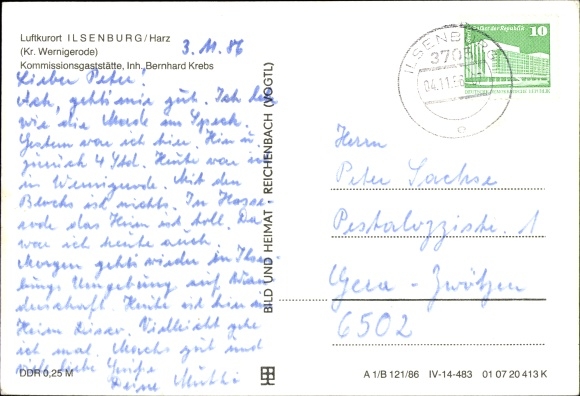 Luftkurort ILSENBURG/Harz
(Kr. Wernigerode)
Kommissionsgaststätte, Inh. Bernhard Krebs
3.11.86
Lieber Peter!
Ach, geht's mir gut. Ich lebe
wie die Made im Speck.
Gestern war ich hier. Hin u.
zurück 4 Std. Heute war ich
in Wernigerode. Mit dem
Blocks ist nichts. In Hasse-
rode das Heim ist toll. Da
war ich heute auch.
Morgen geht's wieder in Ilsen-
burgs Umgebung auf Wan-
derschaft. Heute ist hier im
Heim Disco. Vielleicht gehe
ich mal. Machs gut und
viele liebe Grüße
Deine Mutti
DDR 0,25 M
BILD UND HEIMAT · REICHENBACH (VOGTL)
ILSENBURG
3705
04.11.86
e
Palast der Republik
10
DEUTSCHE DEMOKRATISCHE REPUBLIK
Herrn
Peter Sachse
Pestalozzistr. 1
Gera - Zwötzen
6502
A 1/B 121/86 IV-14-483 01 07 20 413 K